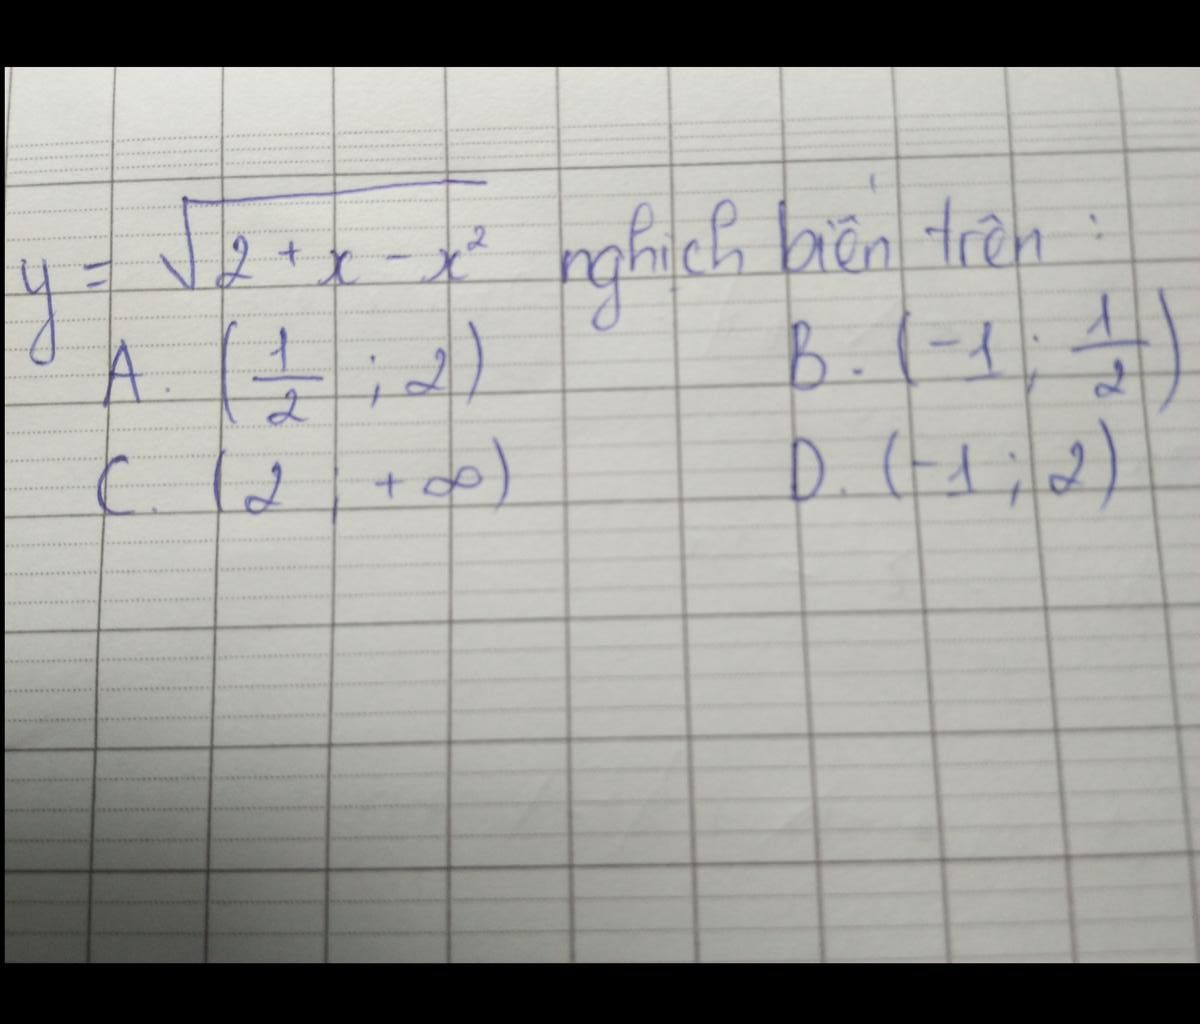 y = √(2 + x - x²) nghịch biến trên :
A. (1/2 ; 2) B. (-1 ; 1/2)
C. (2 ; +∞) D. (-1 ; 2)